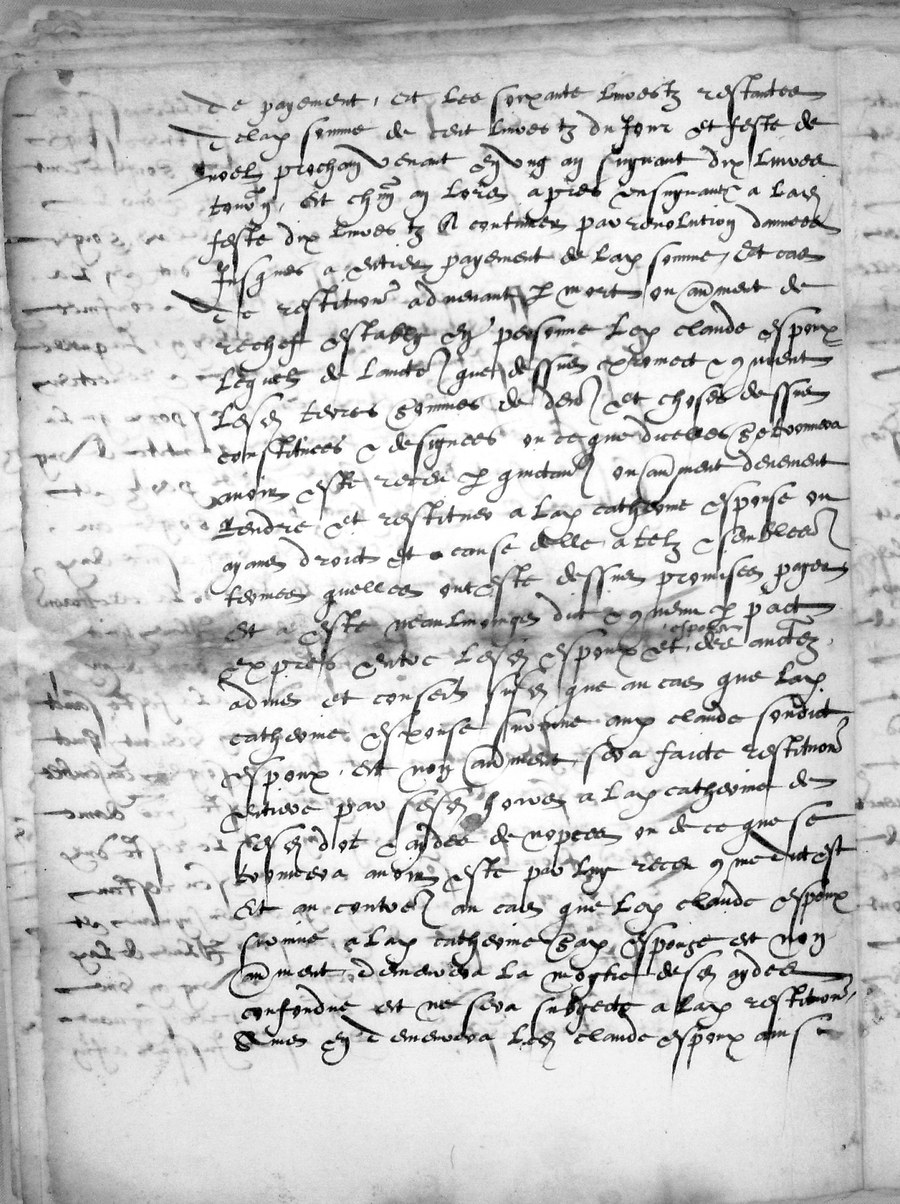 de payement, Et les soixante livres tz restantes
de lad somme de cent livres tz du jour et feste de
noel prochain venant en ung an suyvant dix livres
tourn, Et chun an lors apres ensuyvant a lad
feste dix livres tz Et continuer par revolution dannees
Jusques a entier payement de lad somme, Et cas
de restitution advenant p mort ou aultment de
rechef estably en personne led claude espoux
lequel de laucte que dessus a promect & convient
lesd terres sommes de den et choses dessus
constituees & designees ou ce que dicelles se trouvera
avoir este receu p quictance ou aultment deuement
Rendre et restituer a lad catherine espouse ou
ayans droict et cause delle a telz & semblables
termes quelles ont este dessus promises payer
Et a este neantmoingz dict & convenu p pacte
expres entre lesd espoux et espouse, des auctez
advis et conseil susd que au cas que lad
catherine espouse survive aud claude sondict
espoux, Et non aultment, sera faicte restitution
entiere par sesd hoires a lad catherine de
sesd dot & aydes de nopces ou de ce que se
trouvera avoir este par luy receu comme dict est
Et au contre au cas que led claude espoux
survive a lad catherine sad espouse et non
aultment, demeurera la moytie desd aydes
confondue et ne sera subgecte a lad restitution,
Ains en demeurera led claude espoux